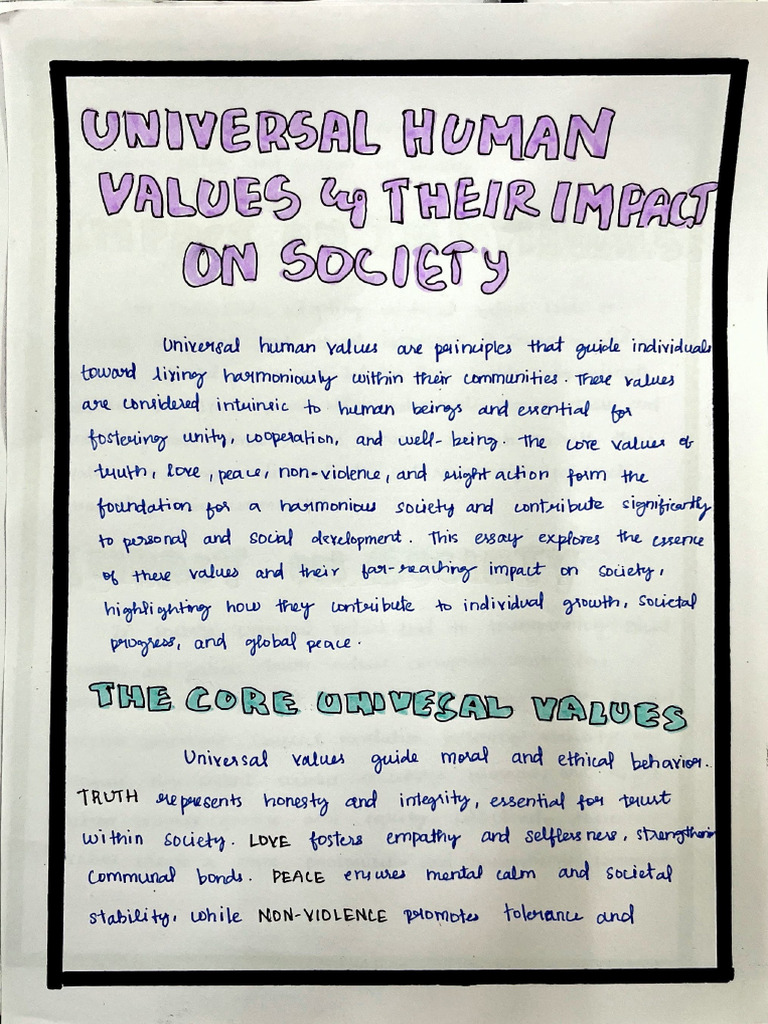 UNIVERSAL HUMAN
VALUES & THEIR IMPACT
ON SOCIETY
Universal human values are principles that guide individuals
toward living harmoniously within their communities. These values
are considered intrinsic to human beings and essential for
fostering unity, cooperation, and well-being. The core values of
truth, love, peace, non-violence, and right action form the
foundation for a harmonious society and contribute significantly
to personal and social development. This essay explores the essence
of these values and their far-reaching impact on society,
highlighting how they contribute to individual growth, societal
progress, and global peace.
THE CORE UNIVESAL VALUES
Universal values guide moral and ethical behavior.
TRUTH represents honesty and integrity, essential for trust
within society. LOVE fosters empathy and selflessness, strengthening
communal bonds. PEACE ensures mental calm and societal
stability, while NON-VIOLENCE promotes tolerance and